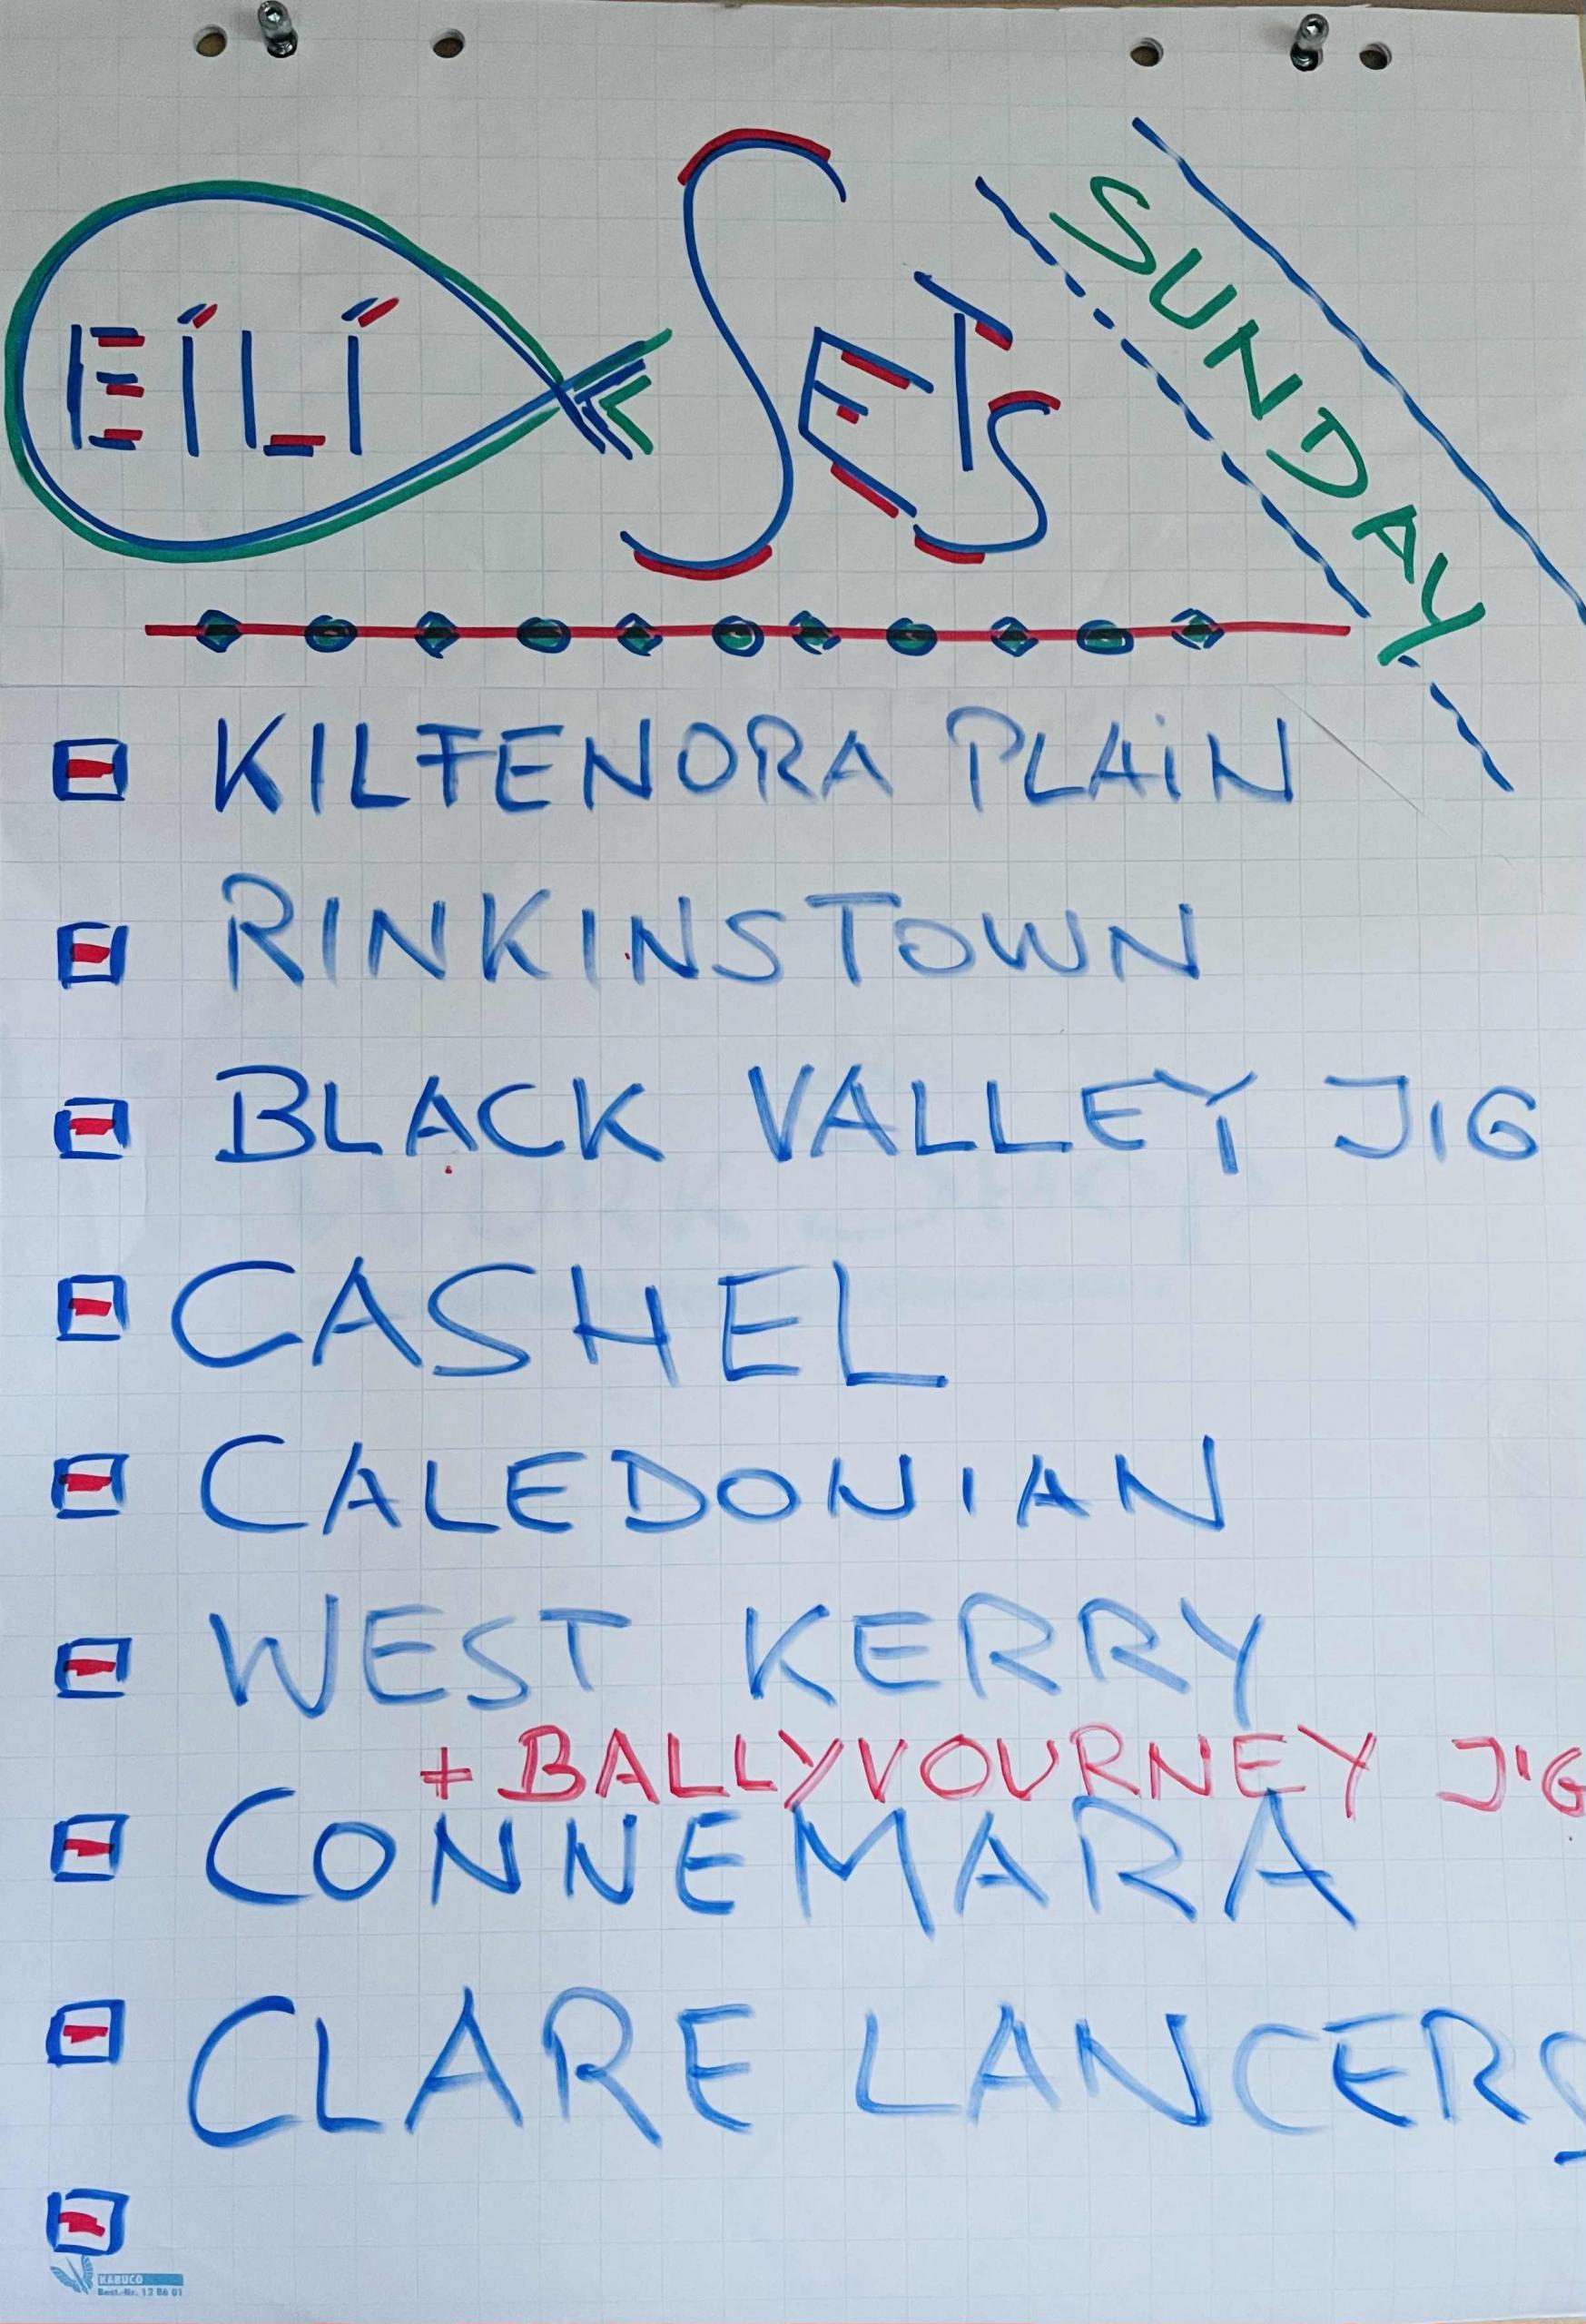 EÍLÍ SETS
SUNDAY
KILFENORA PLAIN
RINKINSTOWN
BLACK VALLEY JIG
CASHEL
CALEDONIAN
WEST KERRY
+ BALLYVOURNEY JIG
CONNEMARA
CLARE LANCERS
KABUCO
Best.-Nr. 12 86 01